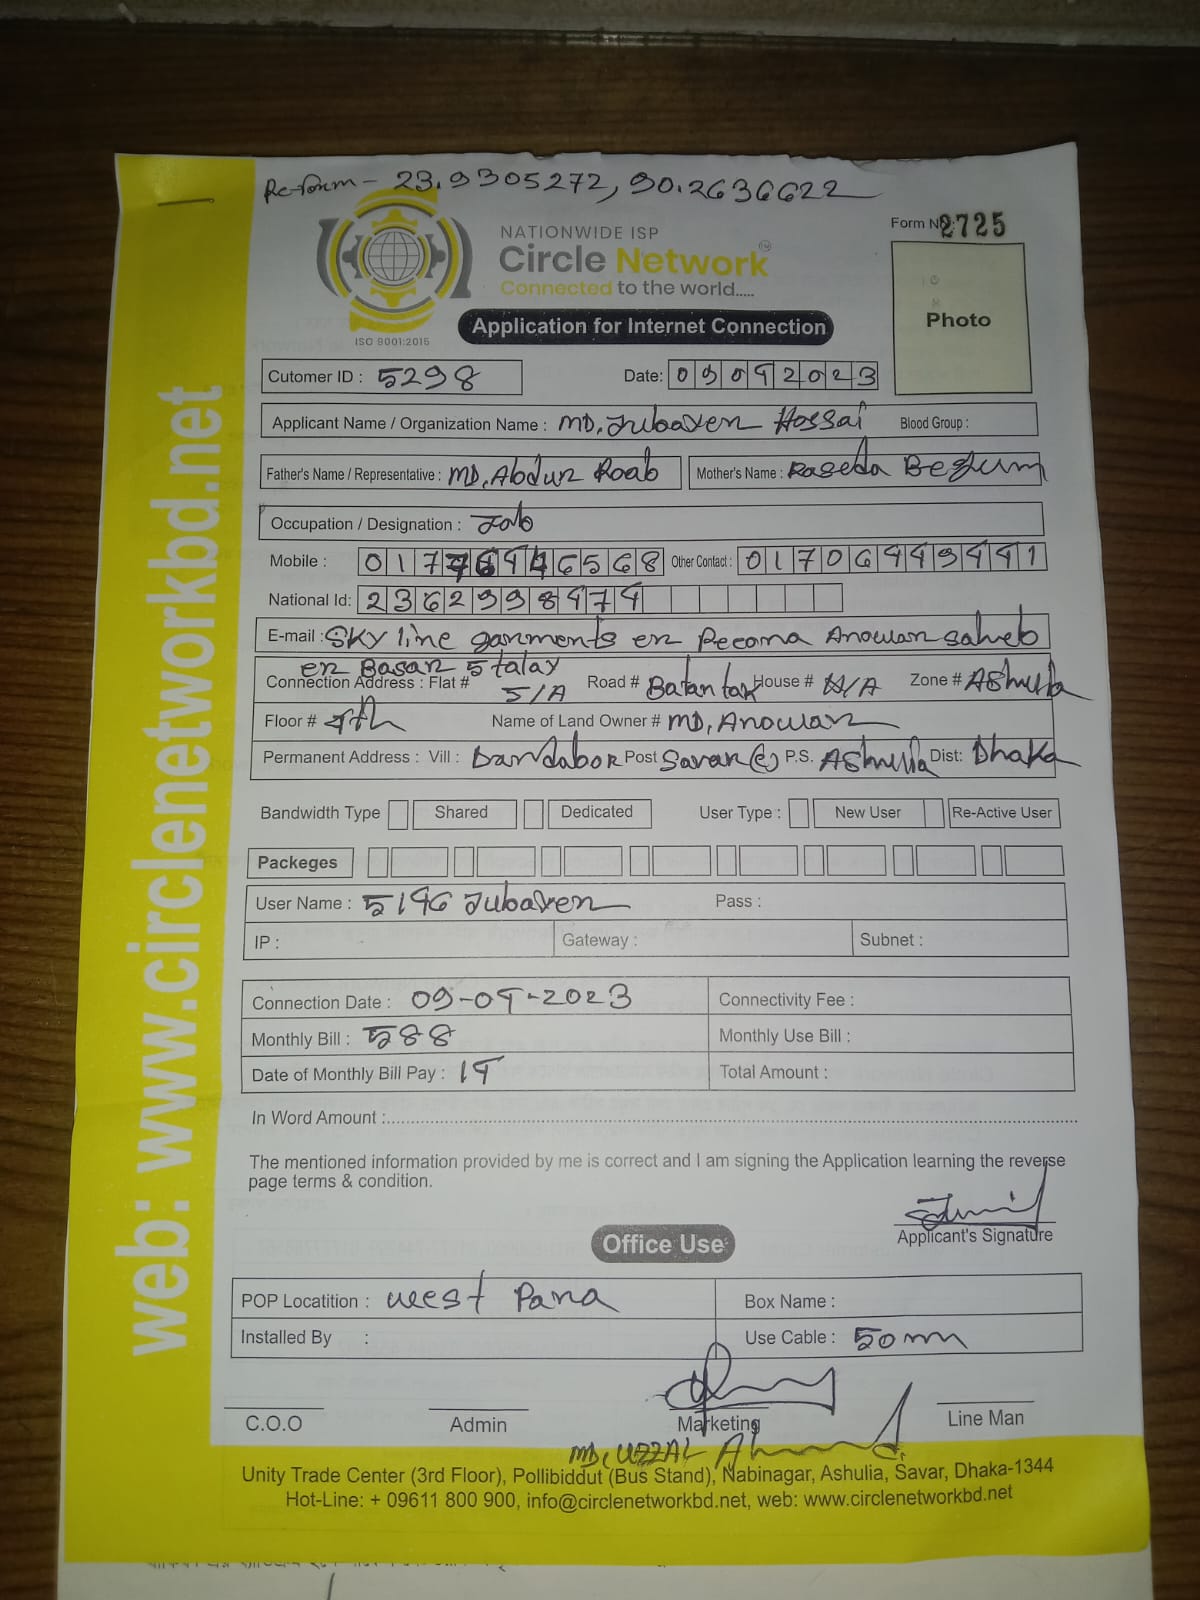 Re-form - 23.9305272, 90.2636622
Form No: 2725
NATIONWIDE ISP
Circle Network
Connected to the world.....
ISO 9001:2015
Application for Internet Connection
Photo
Cutomer ID : 5298
Date: 09042023
Applicant Name / Organization Name : MD, Jubaxen Hossai Blood Group :
Father's Name / Representative : MD, Abdur Roab Mother's Name : Raseda Begum
Occupation / Designation : Job
Mobile : 01776446568 Other Contact : 01706449441
National Id: 2362998474
E-mail : SKy line garments er Pecona Anowar saheb
er Basar 5 talay
Connection Address : Flat # 5/A Road # Batantak House # N/A Zone # Ashulia
Floor # 4th Name of Land Owner # MD, Anowar
Permanent Address : Vill : Dandabor Post Savar P.S. Ashulia Dist: Dhaka
Bandwidth Type Shared Dedicated User Type : New User Re-Active User
Packeges
User Name : 5196 Jubaxen Pass :
IP : Gateway : Subnet :
Connection Date : 09-04-2023 Connectivity Fee :
Monthly Bill : 588 Monthly Use Bill :
Date of Monthly Bill Pay : 14 Total Amount :
In Word Amount :
The mentioned information provided by me is correct and I am signing the Application learning the reverse
page terms & condition.
Applicant's Signature
Office Use
POP Locatition : west Para Box Name :
Installed By : Use Cable : 50 m
C.O.O Admin Marketing Line Man
MD, UZZAL Ahmed
Unity Trade Center (3rd Floor), Pollibiddut (Bus Stand), Nabinagar, Ashulia, Savar, Dhaka-1344
Hot-Line: + 09611 800 900, info@circlenetworkbd.net, web: www.circlenetworkbd.net
web: www.circlenetworkbd.net